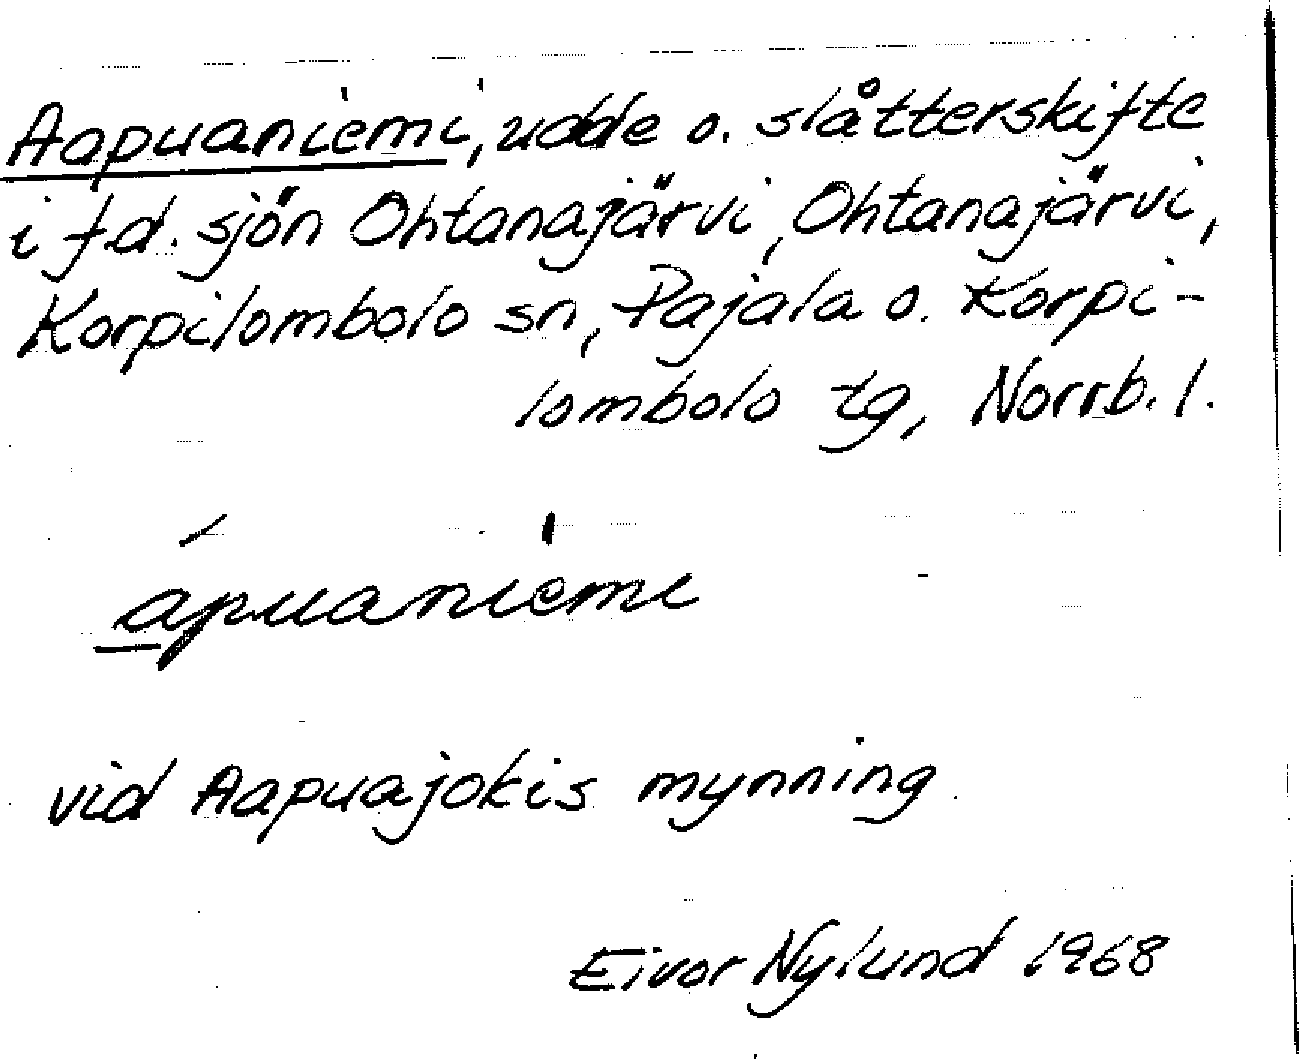 Aapuaniemi, udde o. slåtterskifte
i f.d. sjön Ohtanajärvi, Ohtanajärvi,
Korpilombolo sn, Pajala o. Korpi-
lombolo tg, Norrb. l.
ápuaniemi
vid Aapuajokis mynning
Eivor Nylund 1968